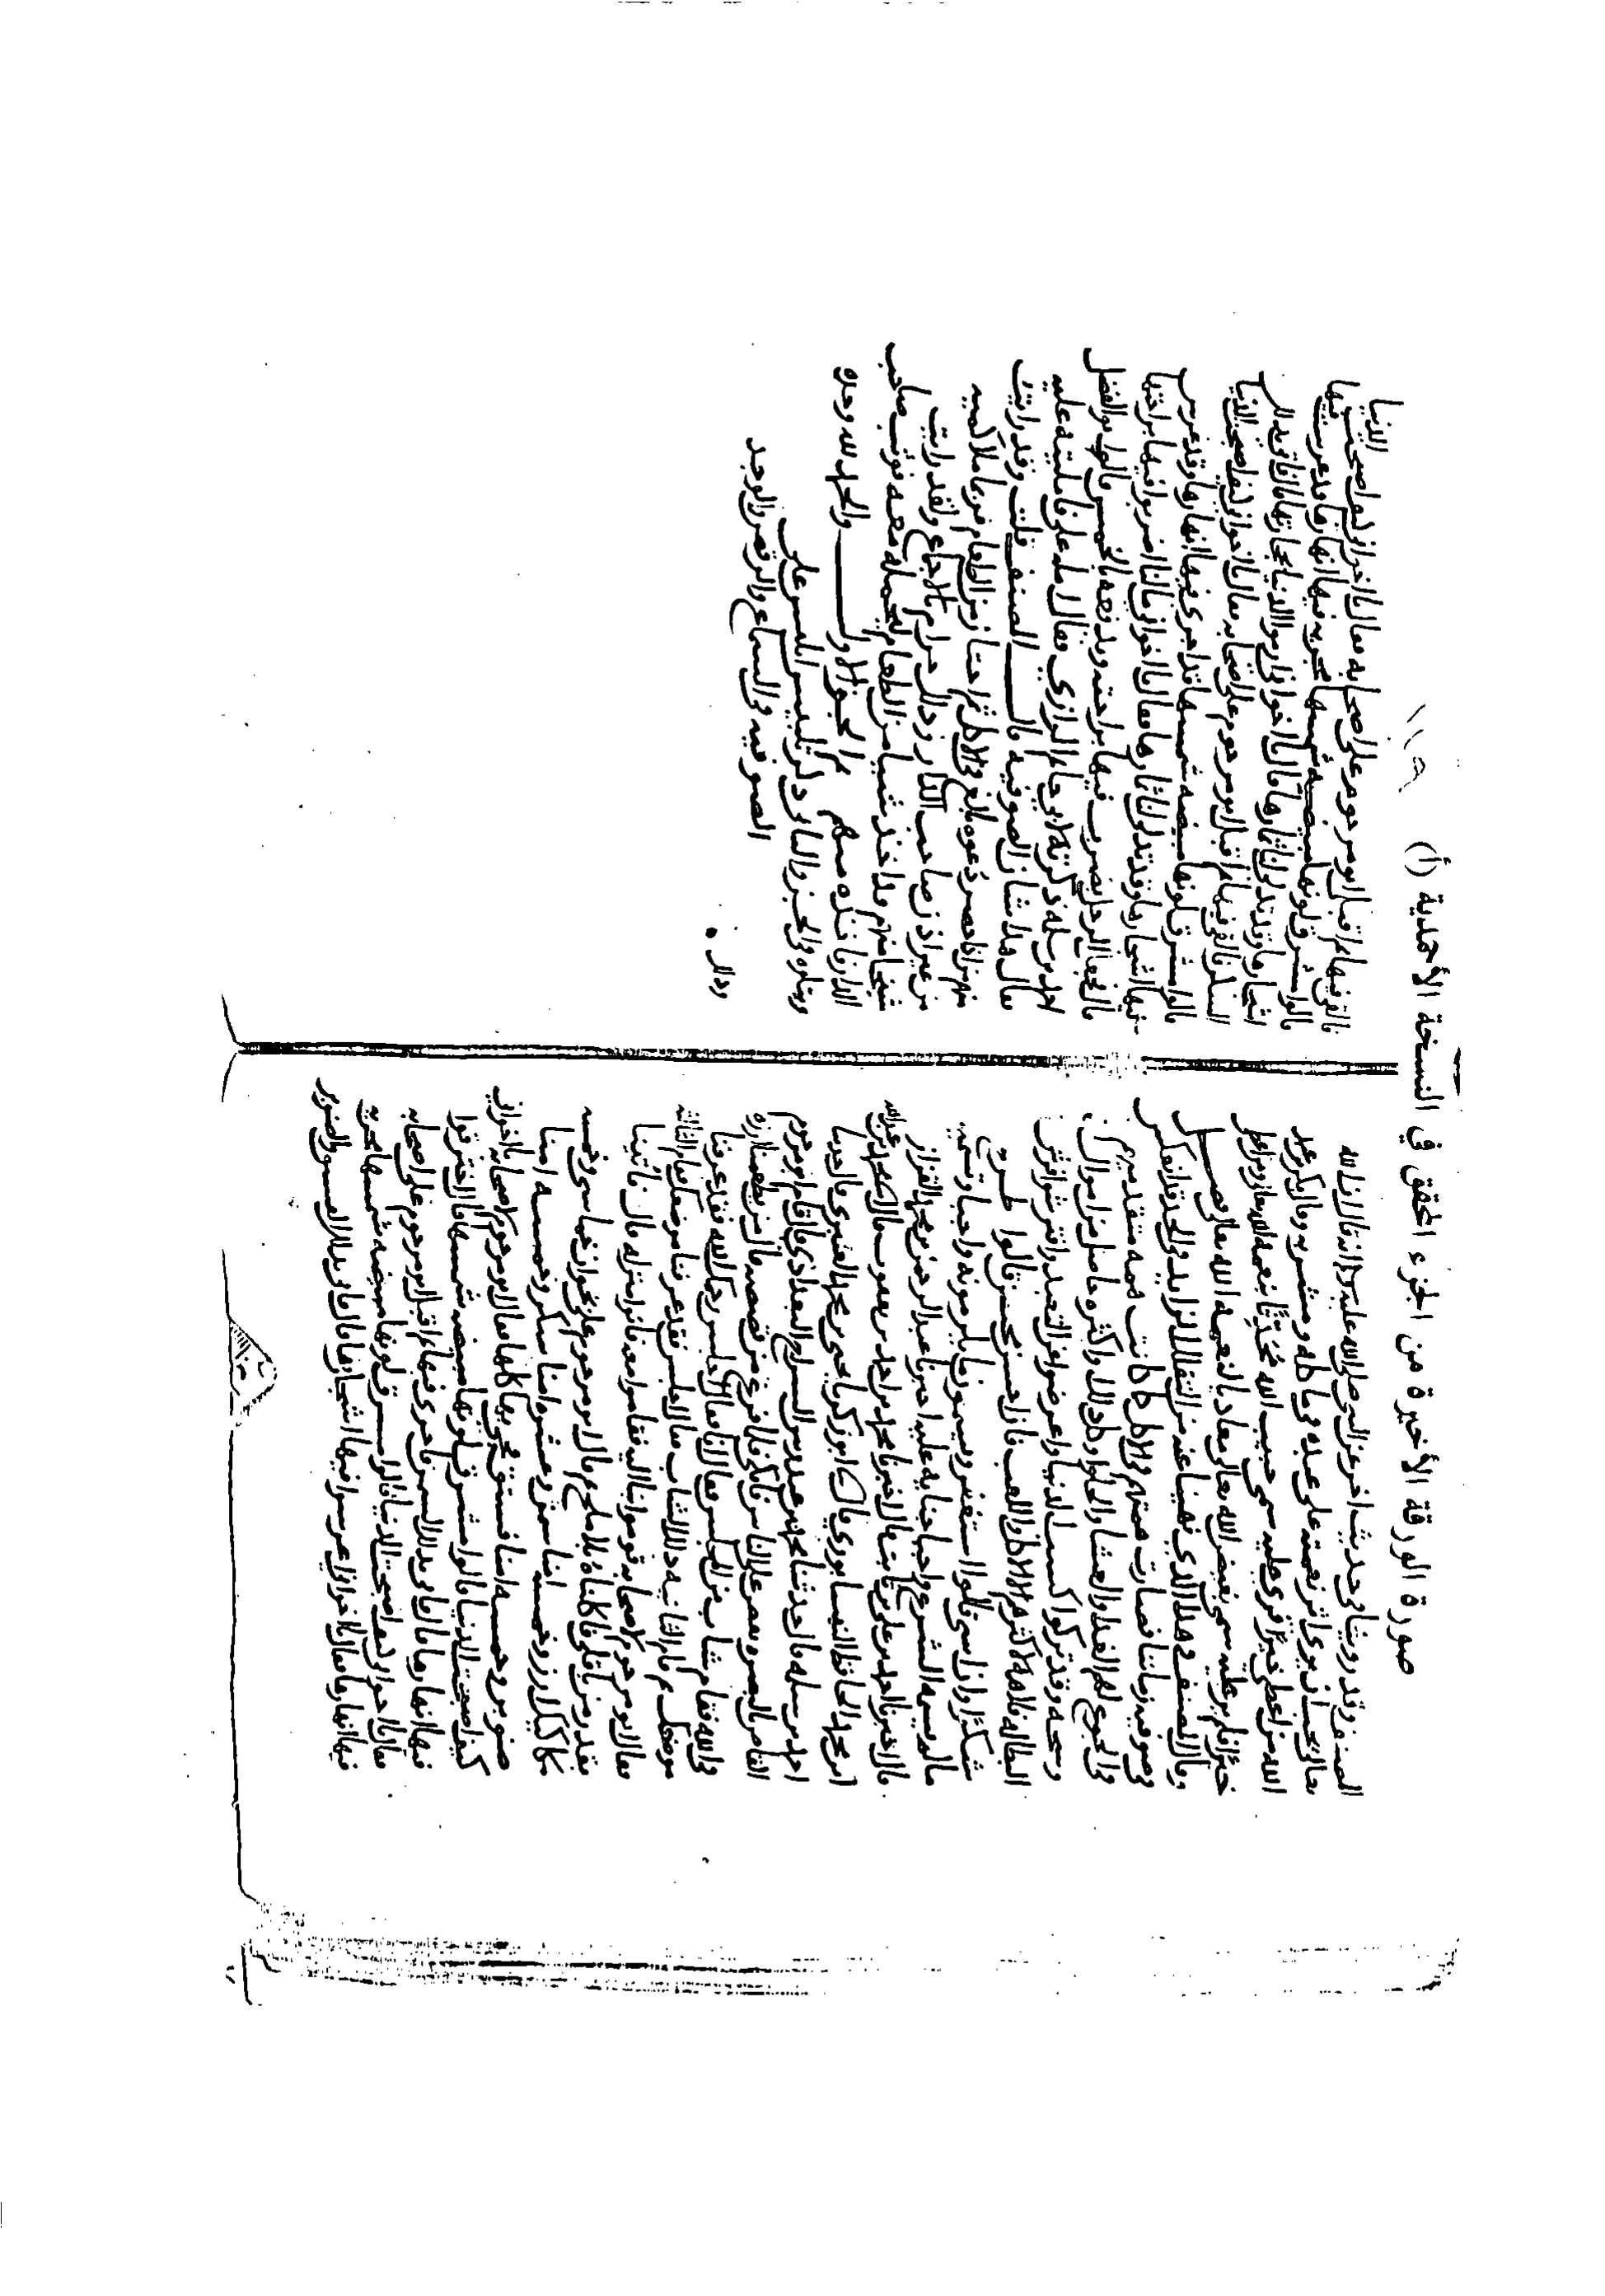 صورة الورقة الأخيرة من الجزء المحقق في النسخة الأحمدية (أ)
المصنف وقد روينا في حديث اخر عن النبي صلى الله عليه وسلم انه قال ان الله
تعالى يحب ان يرى اثر نعمته على عبده في ماكله ومشربه وقال بكر بن عبد
الله من اعطي خيرا فرئي عليه سمي حبيب الله محدثا بنعمة الله عز وجل ومن اعطي
خيرا فلم ير عليه سمي بغيض الله تعالى معاديا لنعمة الله عز وجل فصل
وقال المصنف وهذا الذي نهينا عنه من التقلل الزايد في الحد قد انعكس
في صوفية زماننا فصارت همتهم في الاكل كما كانت همة متقدميهم
في الجوع لهم الغداء والعشاء والحلوا وكل ذلك او اكثره حاصل من اموال
وسخة وقد تركوا كسب الدنيا واعرضوا عن التعبد وافترشوا فراش
البطالة فلا همة لاكثرهم الا الاكل واللعب فان احسن محسن قالوا طرح
شكرا وان اساء مسيء قالوا استغفر ويسمون ما يلزمونه واجبا وتسمية
ما لم يسمه الشرع واجبا جناية عليه اخبرنا عبد الرحمن بن محمد القزاز
قال اخبرنا احمد بن علي بن ثابت قال اخبرنا محمد بن احمد بن يعقوب قال محمد بن عبد الله
بن محمد الحافظ النيسابوري قال ابو زكريا يحيى بن محمد العنبري قال حدثنا
احمد بن سلمة قال حدثنا محمد بن عبدوس السراج البغدادي قال قام ابو مرحوم
القاص بالبصرة يقص على الناس فابكى فلما فرغ من قصصه قال من يطعمنا ارزة
في الله فقام شاب من المجلس فقال انا فقال اجلس رحمك الله فقد عرفنا
موضعك ثم قام الثانية ذلك الشاب فقال اجلس فقد عرفنا موضعك فقام الثالثة
فقال ابو مرحوم لاصحابه قوموا بنا اليه فقاموا معه فاتوا منزله قال فاتينا
بقدر من باقلى فاكلناه بلا ملح ثم قال ابو مرحوم علي بخوان خماسي وخمسة
مكاكيك ارز وخمسة امنان سمن وعشرة امنان سكر وخمسة امنان
صنوبر وخمسة امنان فستق فجيء بها كلها فقال ابو مرحوم لاصحابه يا اخواني
كيف اصبحت الدنيا قالوا مشرق لونها مبيضة شمسها قال اخرقوا
فيها انهارها قال فاتي بذلك السمن فاجري فيها ثم اقبل ابو مرحوم على اصحابه
فقال يا اخواني كيف اصبحت الدنيا قالوا مشرق لونها مبيضة شمسها مجرية
فيها انهارها فقال يا اخواني اغرسوا فيها اشجارها قال فاتي بذلك الفستق والصنوبر
فالقي فيها ثم اقبل ابو مرحوم على اصحابه فقال يا اخواني كيف اصبحت الدنيا
قالوا مشرق لونها مبيضة شمسها مجرية فيها انهارها وقد غرست فيها
اشجارها وقد تدلت لنا ثمارها قال يا اخواني ارموا الدنيا بحجارتها قال فاتي بذلك
السكر فالقي فيها ثم اقبل ابو مرحوم على اصحابه فقال يا اخواني كيف اصبحت الدنيا
قالوا مشرق لونها مبيضة شمسها وقد اجري فيها انهارها وقد غرس
فيها اشجارها وقد تدلت لنا ثمارها فقال يا اخواني ما لنا وللدنيا اضربوا فيها براحتها
قال فجعل الرجل يضرب فيها براحته ويدفعه بالخمس قال ابو الفضل
احمد بن سلمة ذكرته لابي حاتم الرازي فقال امله علي فامليته عليه
فقال هذا شان الصوفية قال المصنف قلت وقد رايت
منهم من اذا حضر دعوة بالغ في الاكل ثم اختار من الطعام فربما ملا كميه
من غير اذن صاحب الدار وذلك حرام بالاجماع ولقد رايت
شيخا منهم قد اخذ شيئا من الطعام ليحمله معه فوثب صاحب
الدار فاخذه منه تم الجزو الاول والحمد لله وحده
ويتلوه في الجزو الثاني ذكر تلبيس ابليس على
الصوفية في السماع والرقص والوجد
وذلك .